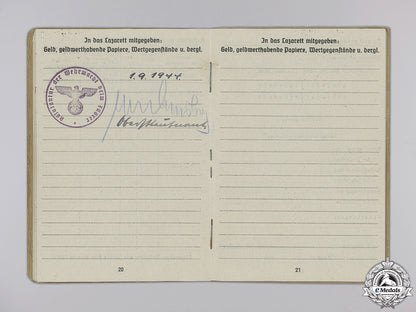 In das Lazarett mitgegeben:
Geld, geldwerthabende Papiere, Wertgegenstände u. dergl.
1.9.1944
der Wehrmacht beim Führer
20
In das Lazarett mitgegeben:
Geld, geldwerthabende Papiere, Wertgegenstände u. dergl.
21
eMedals